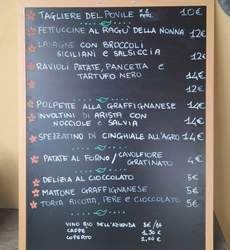 TAGLIERE DEL POVILE x 1 PERS. 10€
FETTUCCINE AL RAGÙ DELLA NONNA 12€
LASAGNE CON BROCCOLI
SICILIANI E SALSICCIA 12€
RAVIOLI PATATE, PANCETTA E
TARTUFO NERO 14€
12€
POLPETTE ALLA GRAFFIGNANESE 14€
INVOLTINI DI ARISTA CON
NOCCIOLE E SALVIA 14€
SPEZZATINO DI CINGHIALE ALL'AGRO 14€
PATATE AL FORNO / CAVOLFIORE
GRATINATO 4€
DELIZIA AL CIOCCOLATO 5€
MATTONE GRAFFIGNANESE 5€
TORTA RICOTTA, PERE E CIOCCOLATO 5€
VINO BIO DELL'AZIENDA
CAFFÈ 1,50€
COPERTO 2,00€